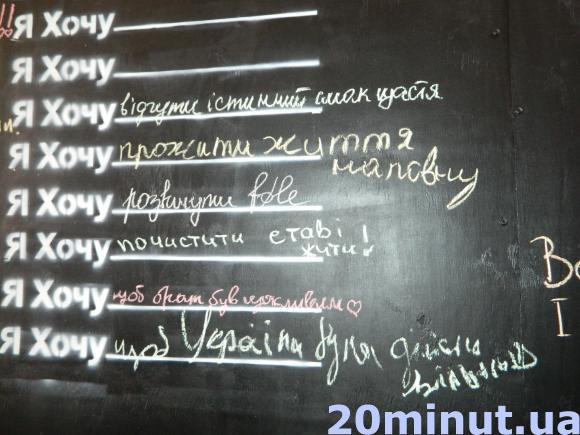 !! Я Хочу
Я Хочу
Я Хочу відчути істинний смак щастя
Я Хочу прожити життя
наповну
Я Хочу
Я Хочу почистити
жити!
Я Хочу щоб брат був щасливим♡
Я Хочу щоб Україна була
вільною
І
20minut.ua